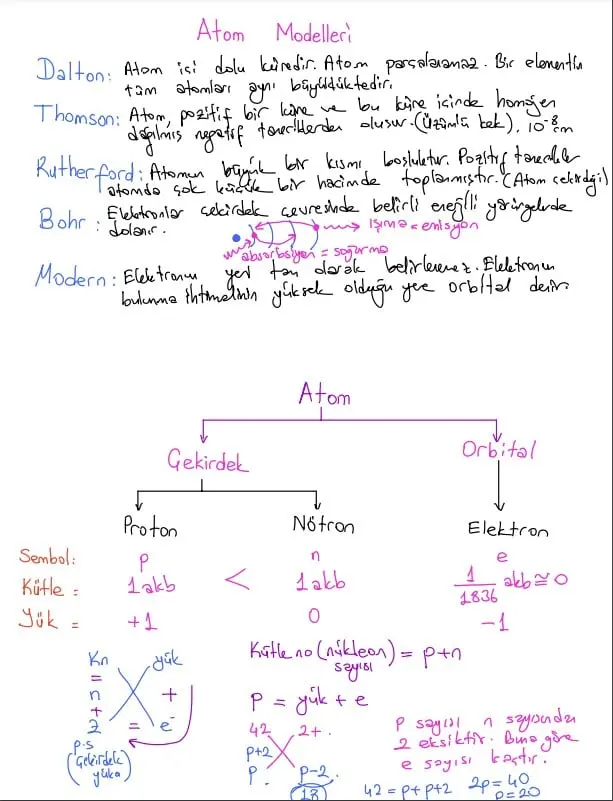 Atom Modelleri
Dalton: Atom içi dolu küredir. Atom parçalanamaz. Bir elementin
tüm atomları aynı büyüklüktedir.
Thomson: Atom, pozitif bir küre ve bu küre içinde homojen
dağılmış negatif taneciklerden oluşur. (Üzümlü kek). 10⁻⁸cm
Rutherford: Atomun büyük bir kısmı boşluktur. Pozitif tanecikler
atomda çok küçük bir hacimde toplanmıştır. (Atom çekirdeği)
Bohr: Elektronlar çekirdek çevresinde belirli enerjili yörüngelerde
dolanır.
ışıma = emisyon
absorbsiyon = soğurma
Modern: Elektronun yeri tam olarak belirlenemez. Elektronun
bulunma ihtimalinin yüksek olduğu yere orbital denir.
Atom
Çekirdek Orbital
Proton Nötron Elektron
Sembol: p n e
Kütle = 1akb < 1akb 1/1836 akb ≅ 0
Yük = +1 0 -1
Kn yük
=
n +
+
Z = e⁻
p.s
(Çekirdek
yükü)
Kütle no (nükleon sayısı) = p+n
P = yük + e
42 2+
p+2
p p-2
18
p sayısı n sayısından
2 eksiktir. Buna göre
e sayısı kaçtır.
42 = p+p+2 2p=40
p=20